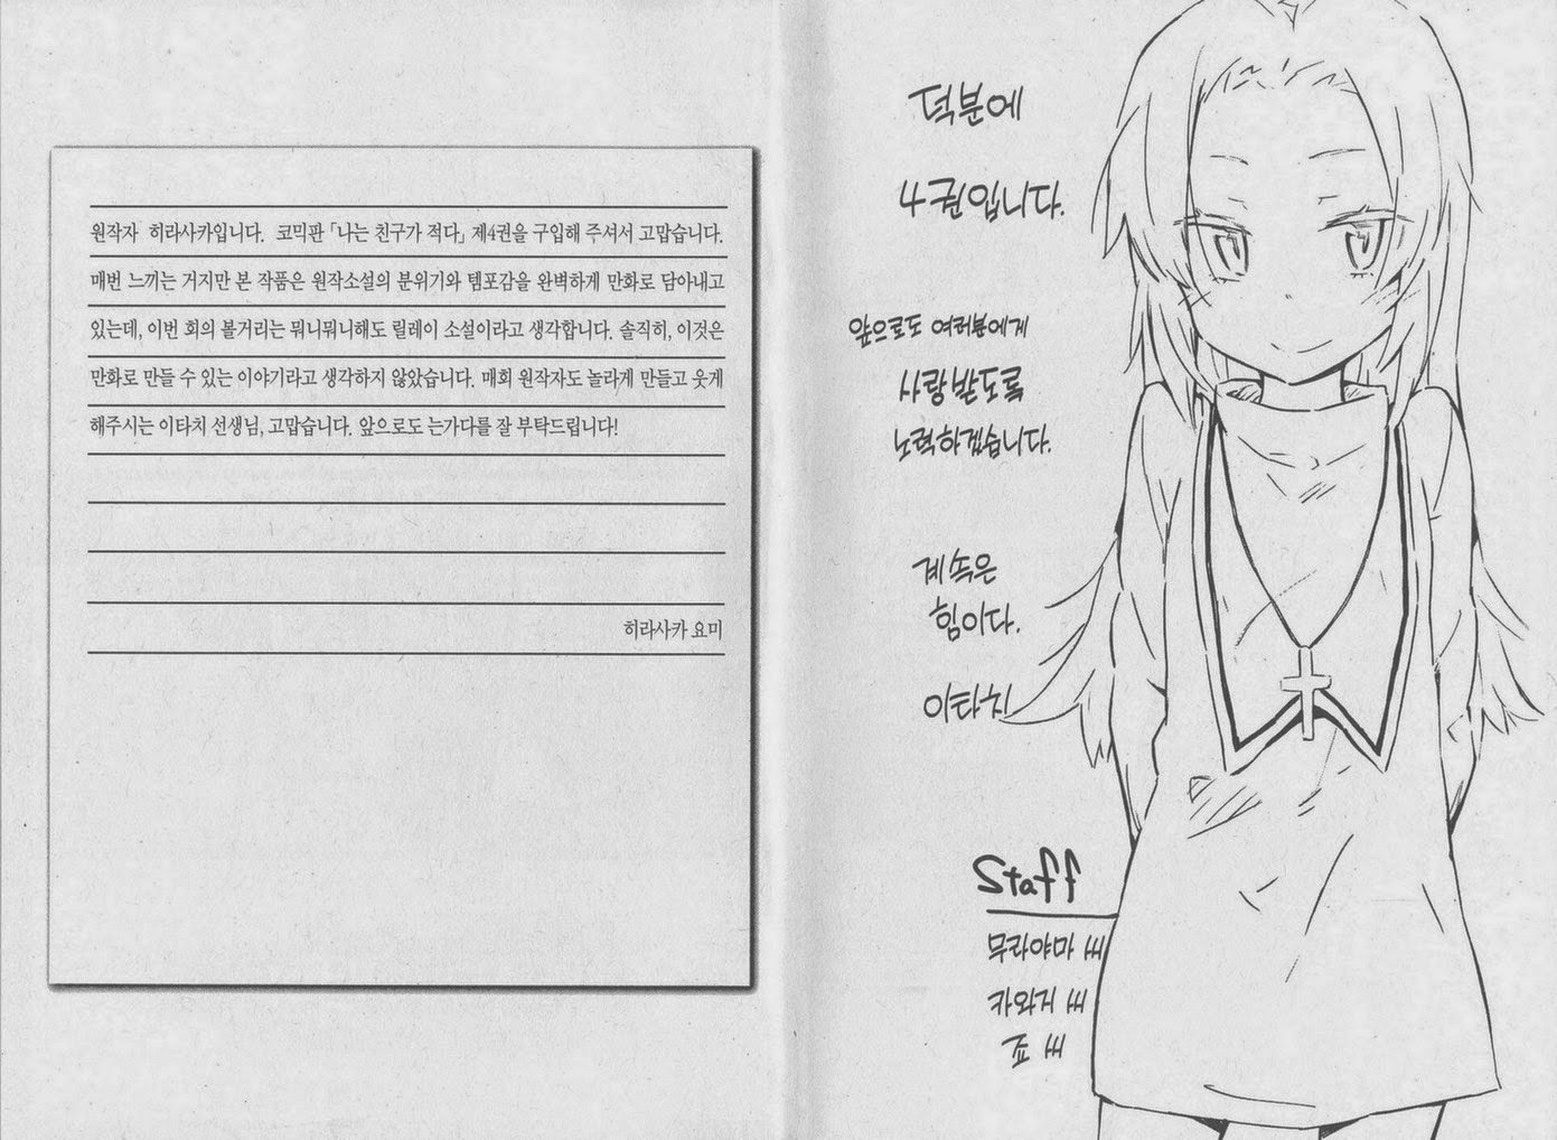 원작자 히라사카입니다. 코믹판 「나는 친구가 적다」 제4권을 구입해 주셔서 고맙습니다.
매번 느끼는 거지만 본 작품은 원작소설의 분위기와 템포감을 완벽하게 만화로 담아내고
있는데, 이번 회의 볼거리는 뭐니뭐니해도 릴레이 소설이라고 생각합니다. 솔직히, 이것은
만화로 만들 수 있는 이야기라고 생각하지 않았습니다. 매회 원작자도 놀라게 만들고 웃게
해주시는 이타치 선생님, 고맙습니다. 앞으로도 는가다를 잘 부탁드립니다!
히라사카 요미
덕분에
4권입니다.
앞으로도 여러분에게
사랑받도록
노력하겠습니다.
계속은
힘이다.
이타치
Staff
무라야마 씨
카와지 씨
죠 씨